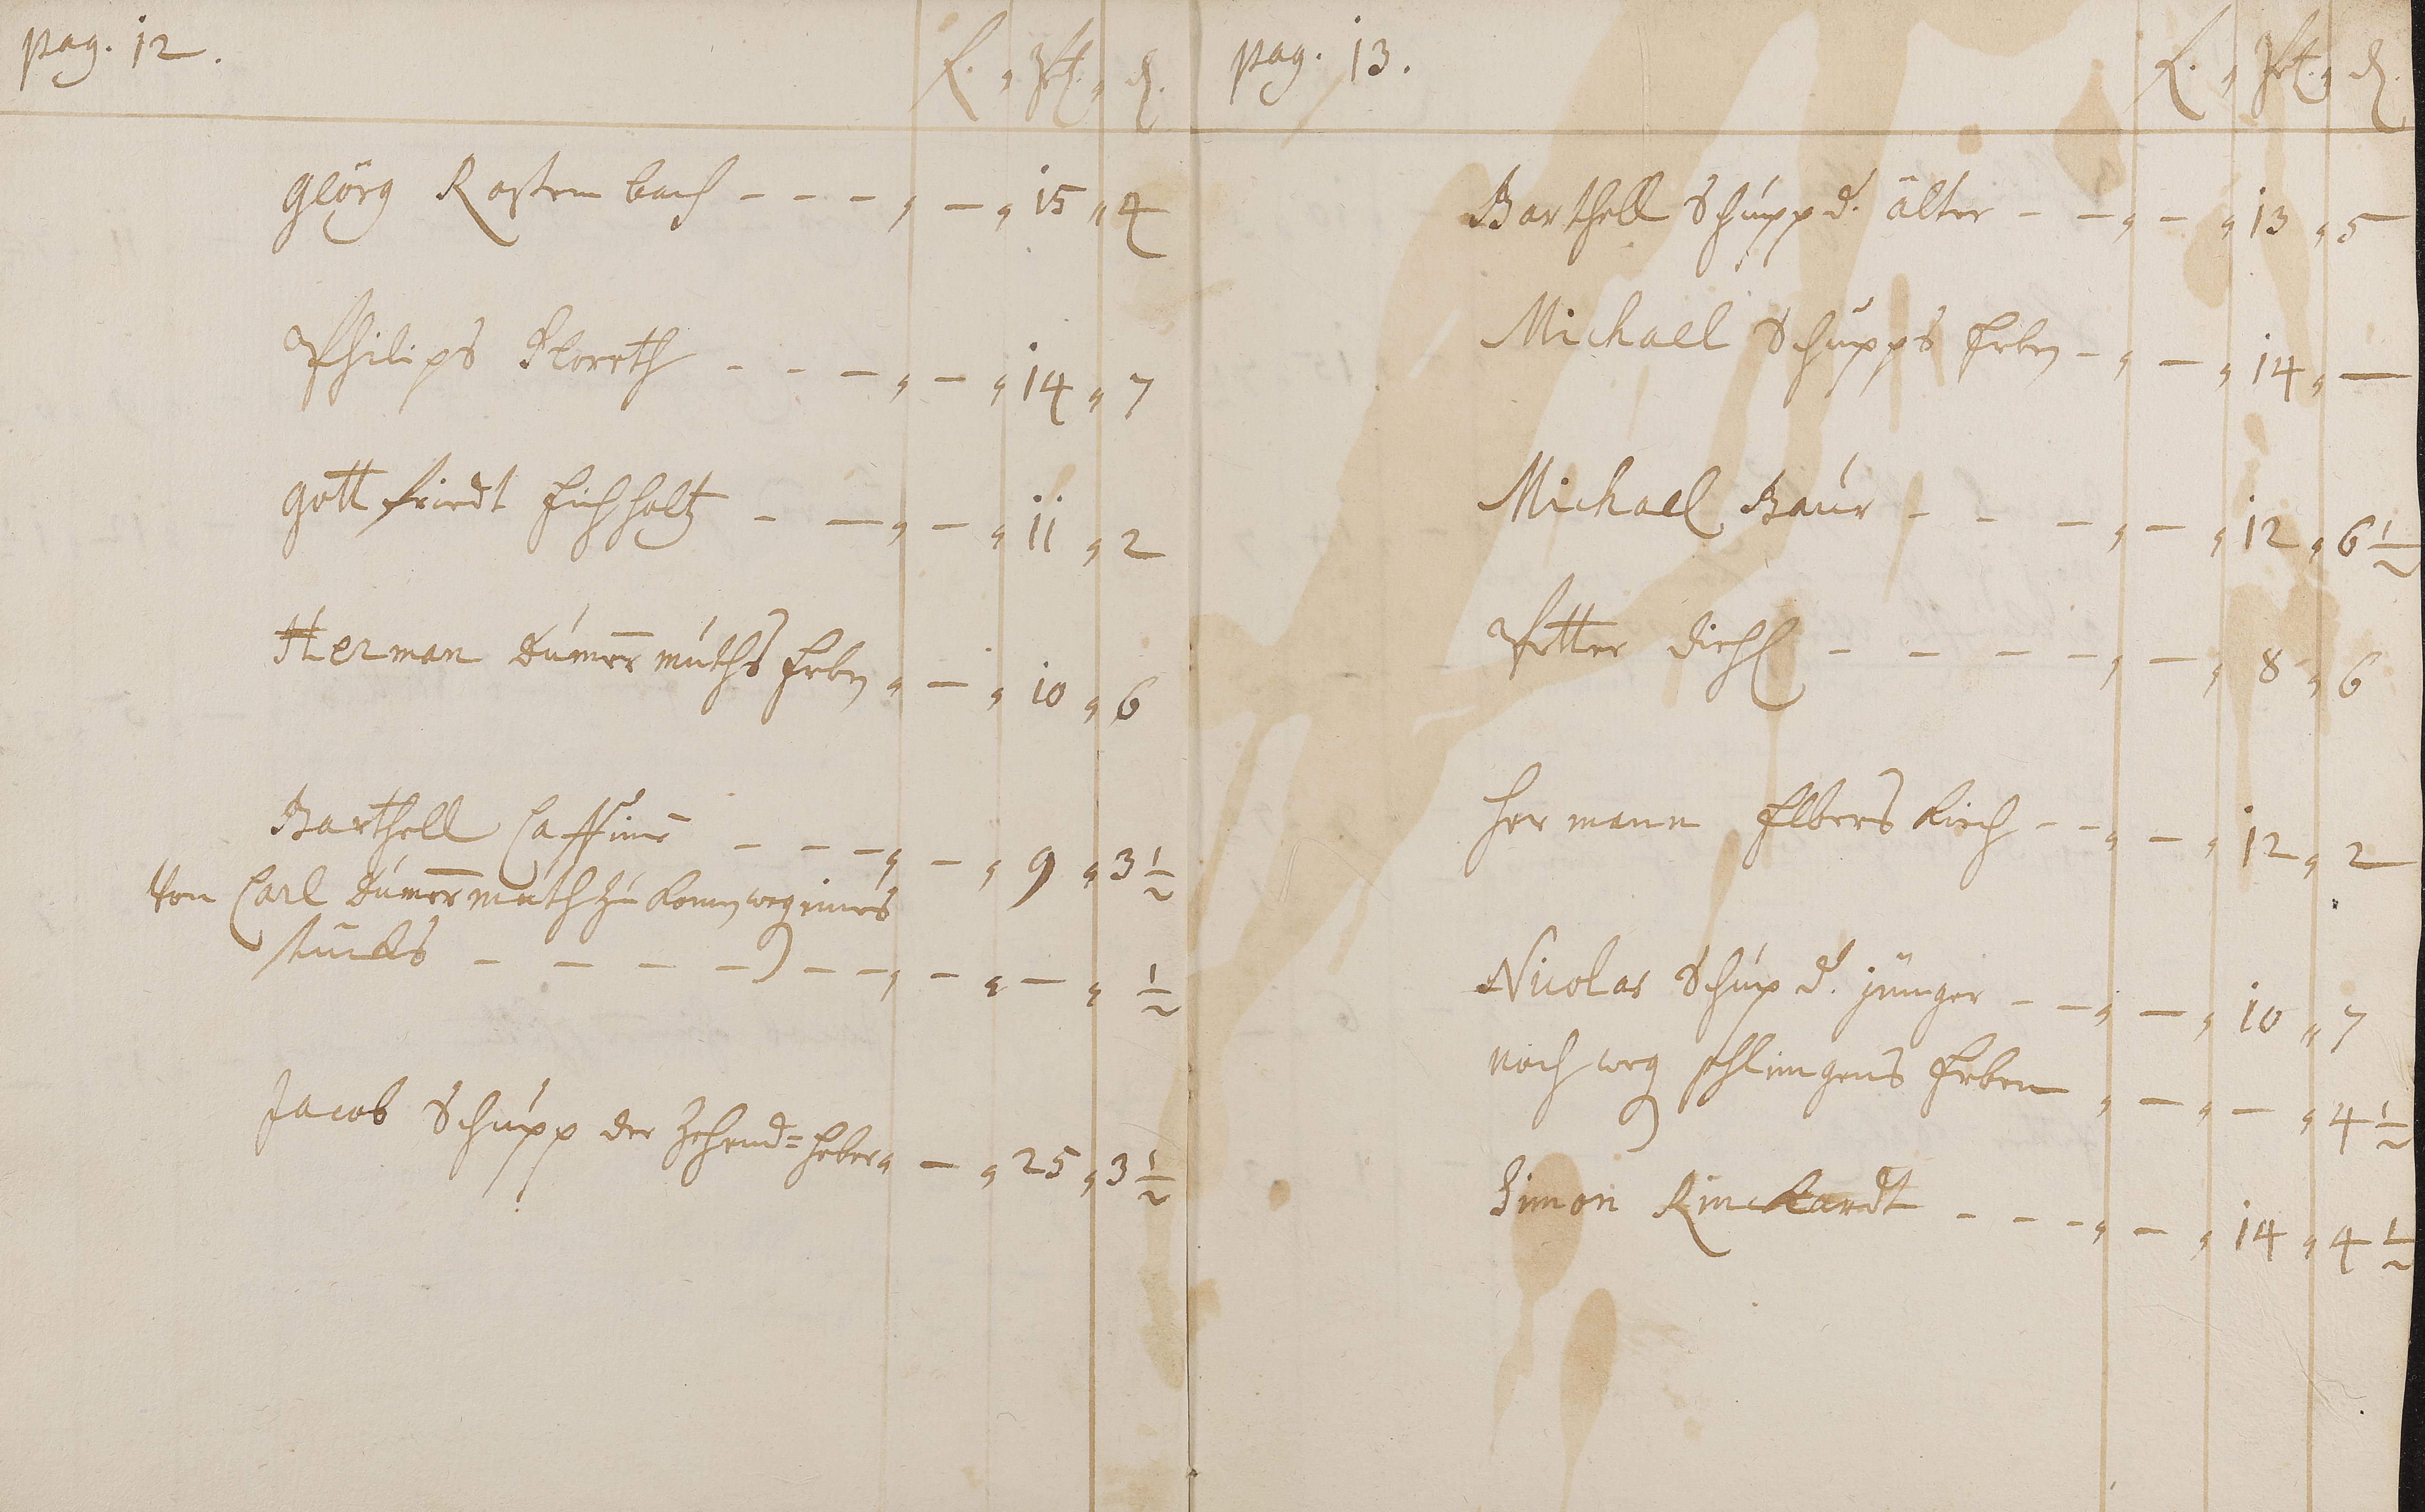 pag. 12.
f. " xr. " d.
Geörg Rostenbach - - - " — " 15 " 4
Philips Floreth - - — " — " 14 " 7
Gottfriedt Eichholtz - — " — " 11 " 2
Herman Dúmermúths Erben " — " 10 " 6
Barthell Caffine - - — " — " 9 " 3 1/2
Von Carl Dúmermúth zú komen weg eines
stücks - - - - - - " - " — " 1/2
Jacob Schúpp der Zehend=heber " — " 25 " 3 1/2
pag. 13.
f. " xr. " d.
Barthell Schúpp d. älter - — " — " 13 " 5
Michael Schupps Erben - " — " 14 " —
Michael Baúr - - — " — " 12 " 6 1/2
Petter Diehl - - - - " — " 8 " 6
Hermann Elberskirch - - " — " 12 " 2
Nicolas Schúp d. jünger - — " — " 10 " 7
noch weg Ehlingens Erben " — " — " 4 1/2
Simon Rinckardt - - - " — " 14 " 4 1/2